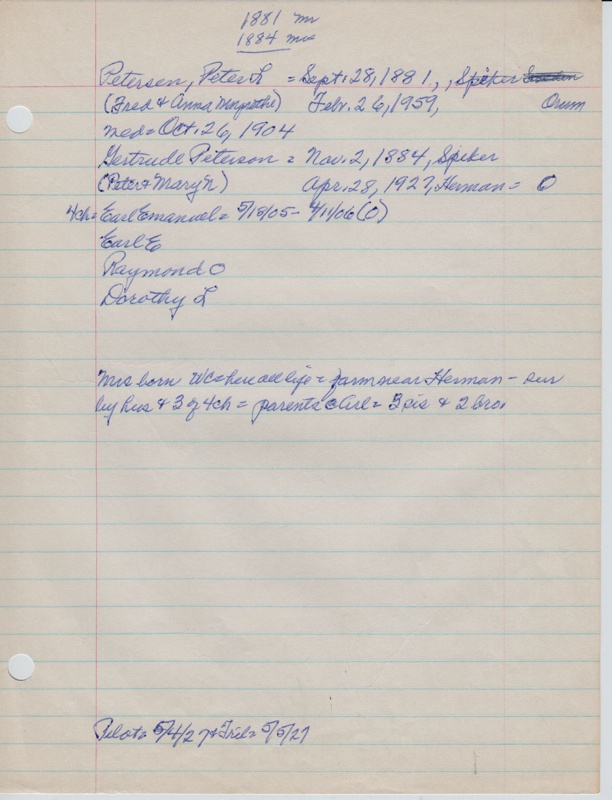 1881 mr
1884 mrs
Petersen, Peter L = Sept. 28, 1881, , Spiker
(Fred & Anna Margrethe) Febr. 26, 1959, Orum
med = Oct. 26, 1904
Gertrude Peterson = Nov. 2, 1884, Spiker
(Peter & Mary N) Apr. 28, 1927, Herman = O
4ch = Earl Emanuel = 5/15/05 - 4/11/06 (O)
Earl E
Raymond O
Dorothy L
Mrs born WC = here all life = farm near Herman - sur
by hus & 3 of 4ch = parents = 3 sis & 2 bro.
Pilot = 5/4/27 & Trib = 5/5/27